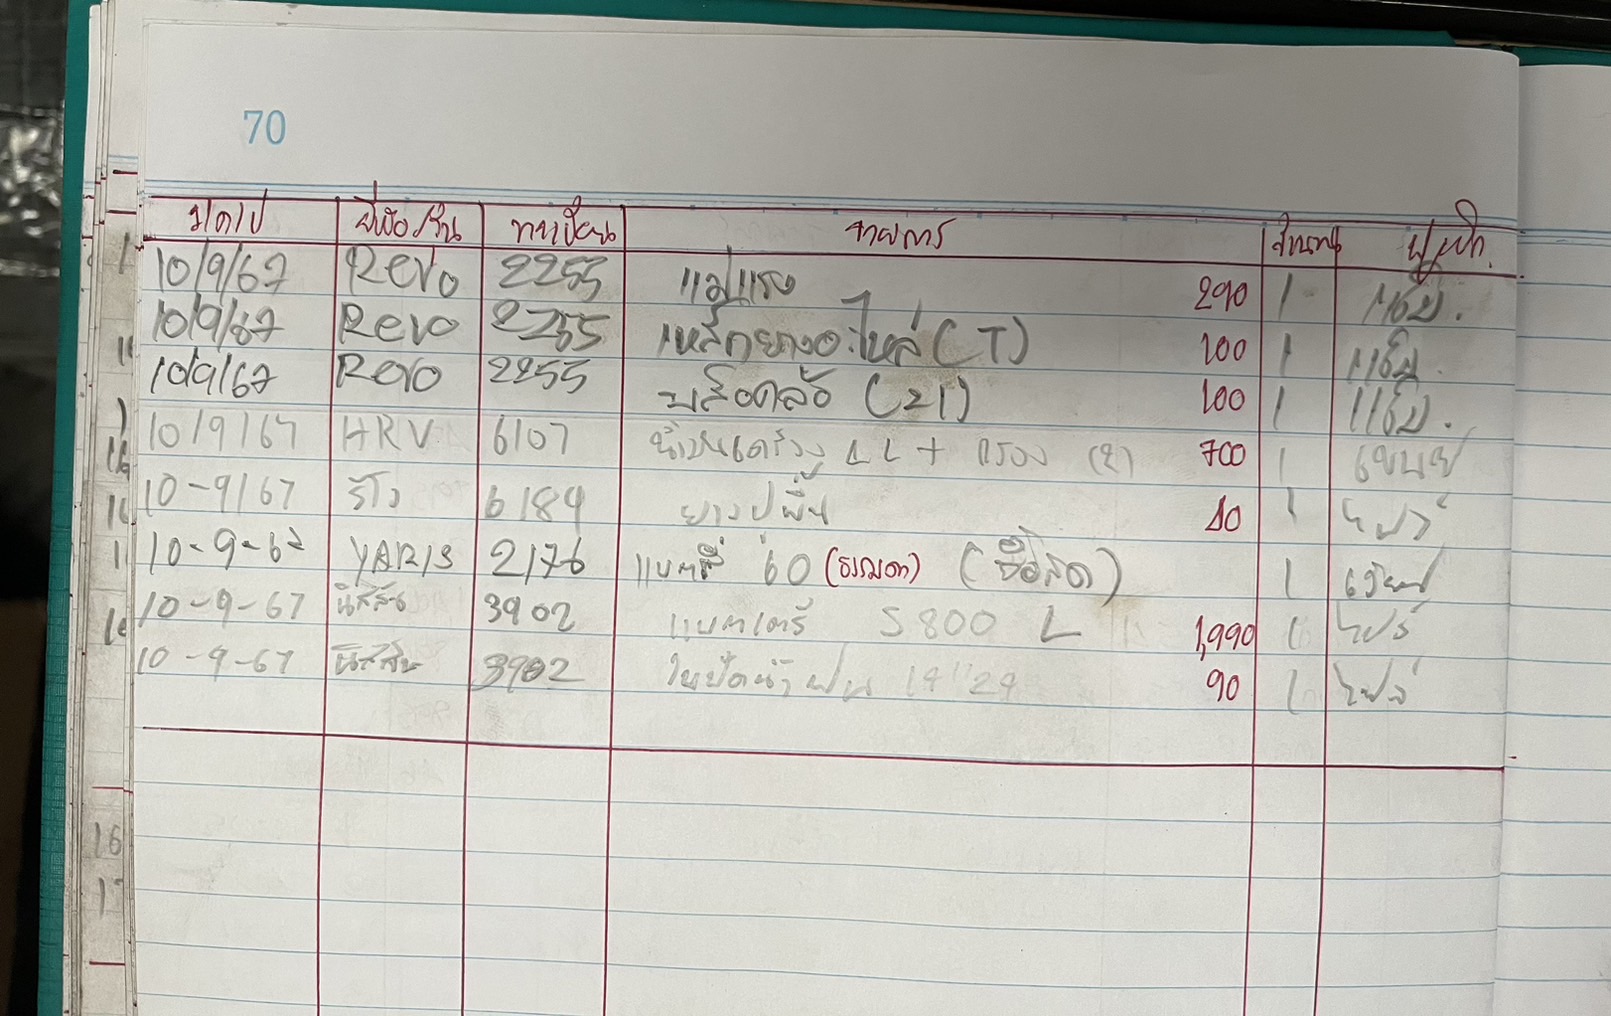 70
ว/ด/ป ยี่ห้อ/รุ่น ทะเบียน รายการ จำนวน ผู้เบิก
10/9/67 Revo 2255 แม่แรง 290 1
10/9/67 Revo 2255 เหล็กยางอะไหล่ (T) 100 1
10/9/67 Revo 2255 บล็อคล้อ (21) 100 1
10/9/67 HRV 6107 น้ำมันเครื่อง LL + กรอง (2) 700 1
10-9/67 รีโว่ 6184 ยางปูพื้น 10 1
10-9-67 YARIS 2176 แบตตี่ 60 (ธรรมดา) (ซื้อสด) 1
10-9-67 นิสสัน 3902 แบตเตรี่ S800 L 1,990 1
10-9-67 นิสสัน 3902 ใบปัดน้ำฝน 14"24 90 1
16